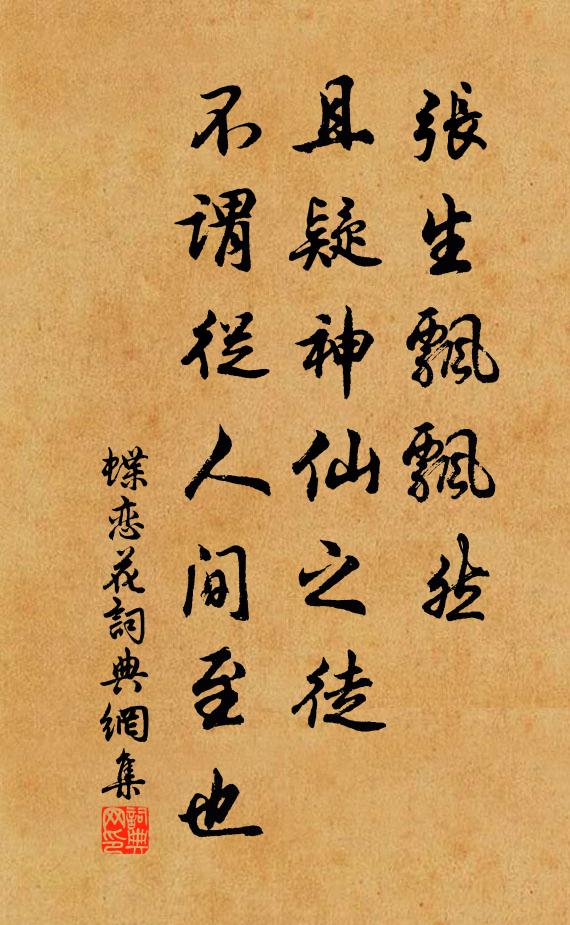 張生飄飄然
且疑神仙之徒
不謂從人间至也
蝶恋花詞典網集
詞典网印